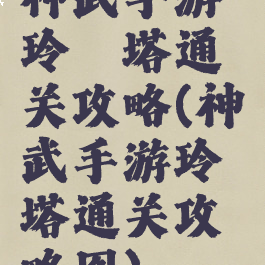 神武手游
玲 塔通
关攻略(神
武手游玲
塔通关攻
略图)